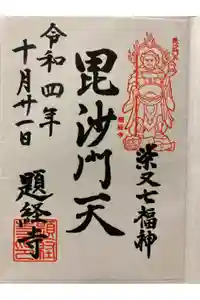 柴又七福神
毘沙門天
令和四年
十月廿一日
題経寺